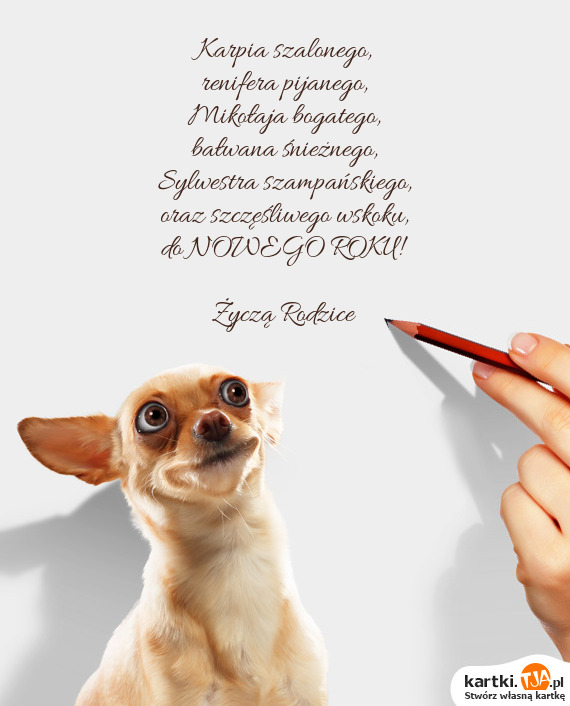 Karpia szalonego,
renifera pijanego,
Mikołaja bogatego,
bałwana śnieżnego,
Sylwestra szampańskiego,
oraz szczęśliwego wskoku,
do NOWEGO ROKU!
Życzą Rodzice
kartki.TJA.pl
Stwórz własną kartkę